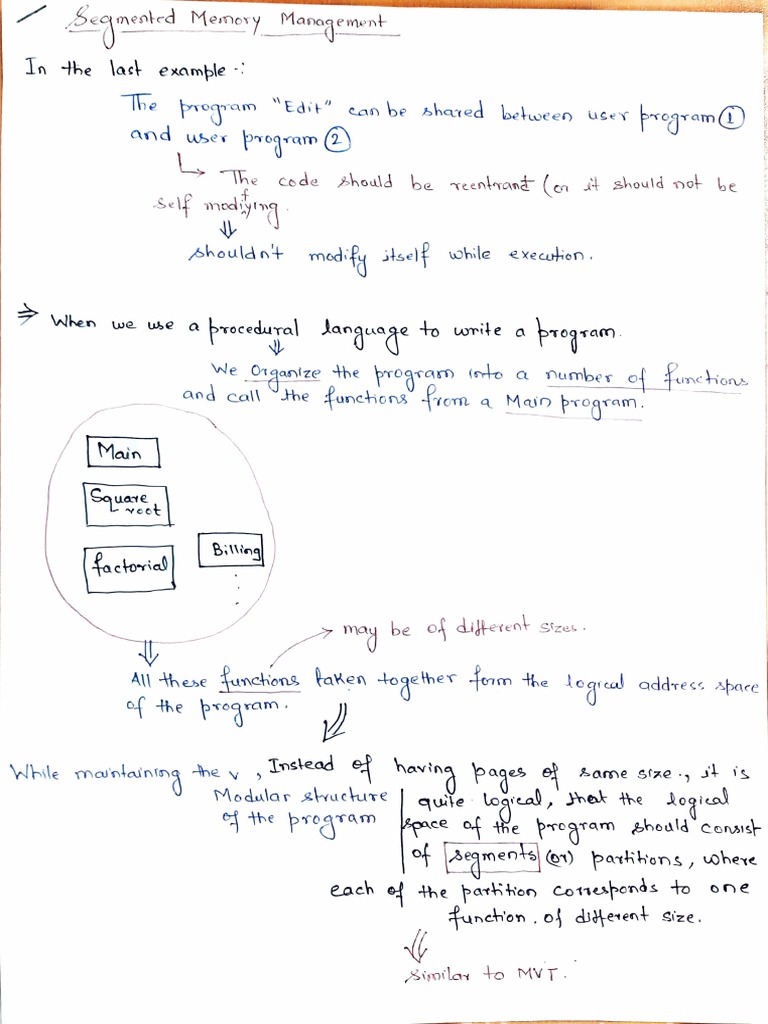 Segmented Memory Management
In the last example :
The program "Edit" can be shared between user program ①
and user program ②
↳ The code should be reentrant (or it should not be
self modifying.
⇓
shouldn't modify itself while execution.
⇒ When we use a procedural language to write a program.
⇓
We Organize the program into a number of functions
and call the functions from a Main program.
Main
Square
root
factorial
Billing
⇓
→ may be of different sizes.
All these functions taken together form the logical address space
of the program.
While maintaining the v , Instead of having pages of same size., it is
Modular structure quite logical, that the logical
of the program space of the program should consist
of segments (or) partitions, where
each of the partition corresponds to one
function. of different size.
⇓
similar to MVT.